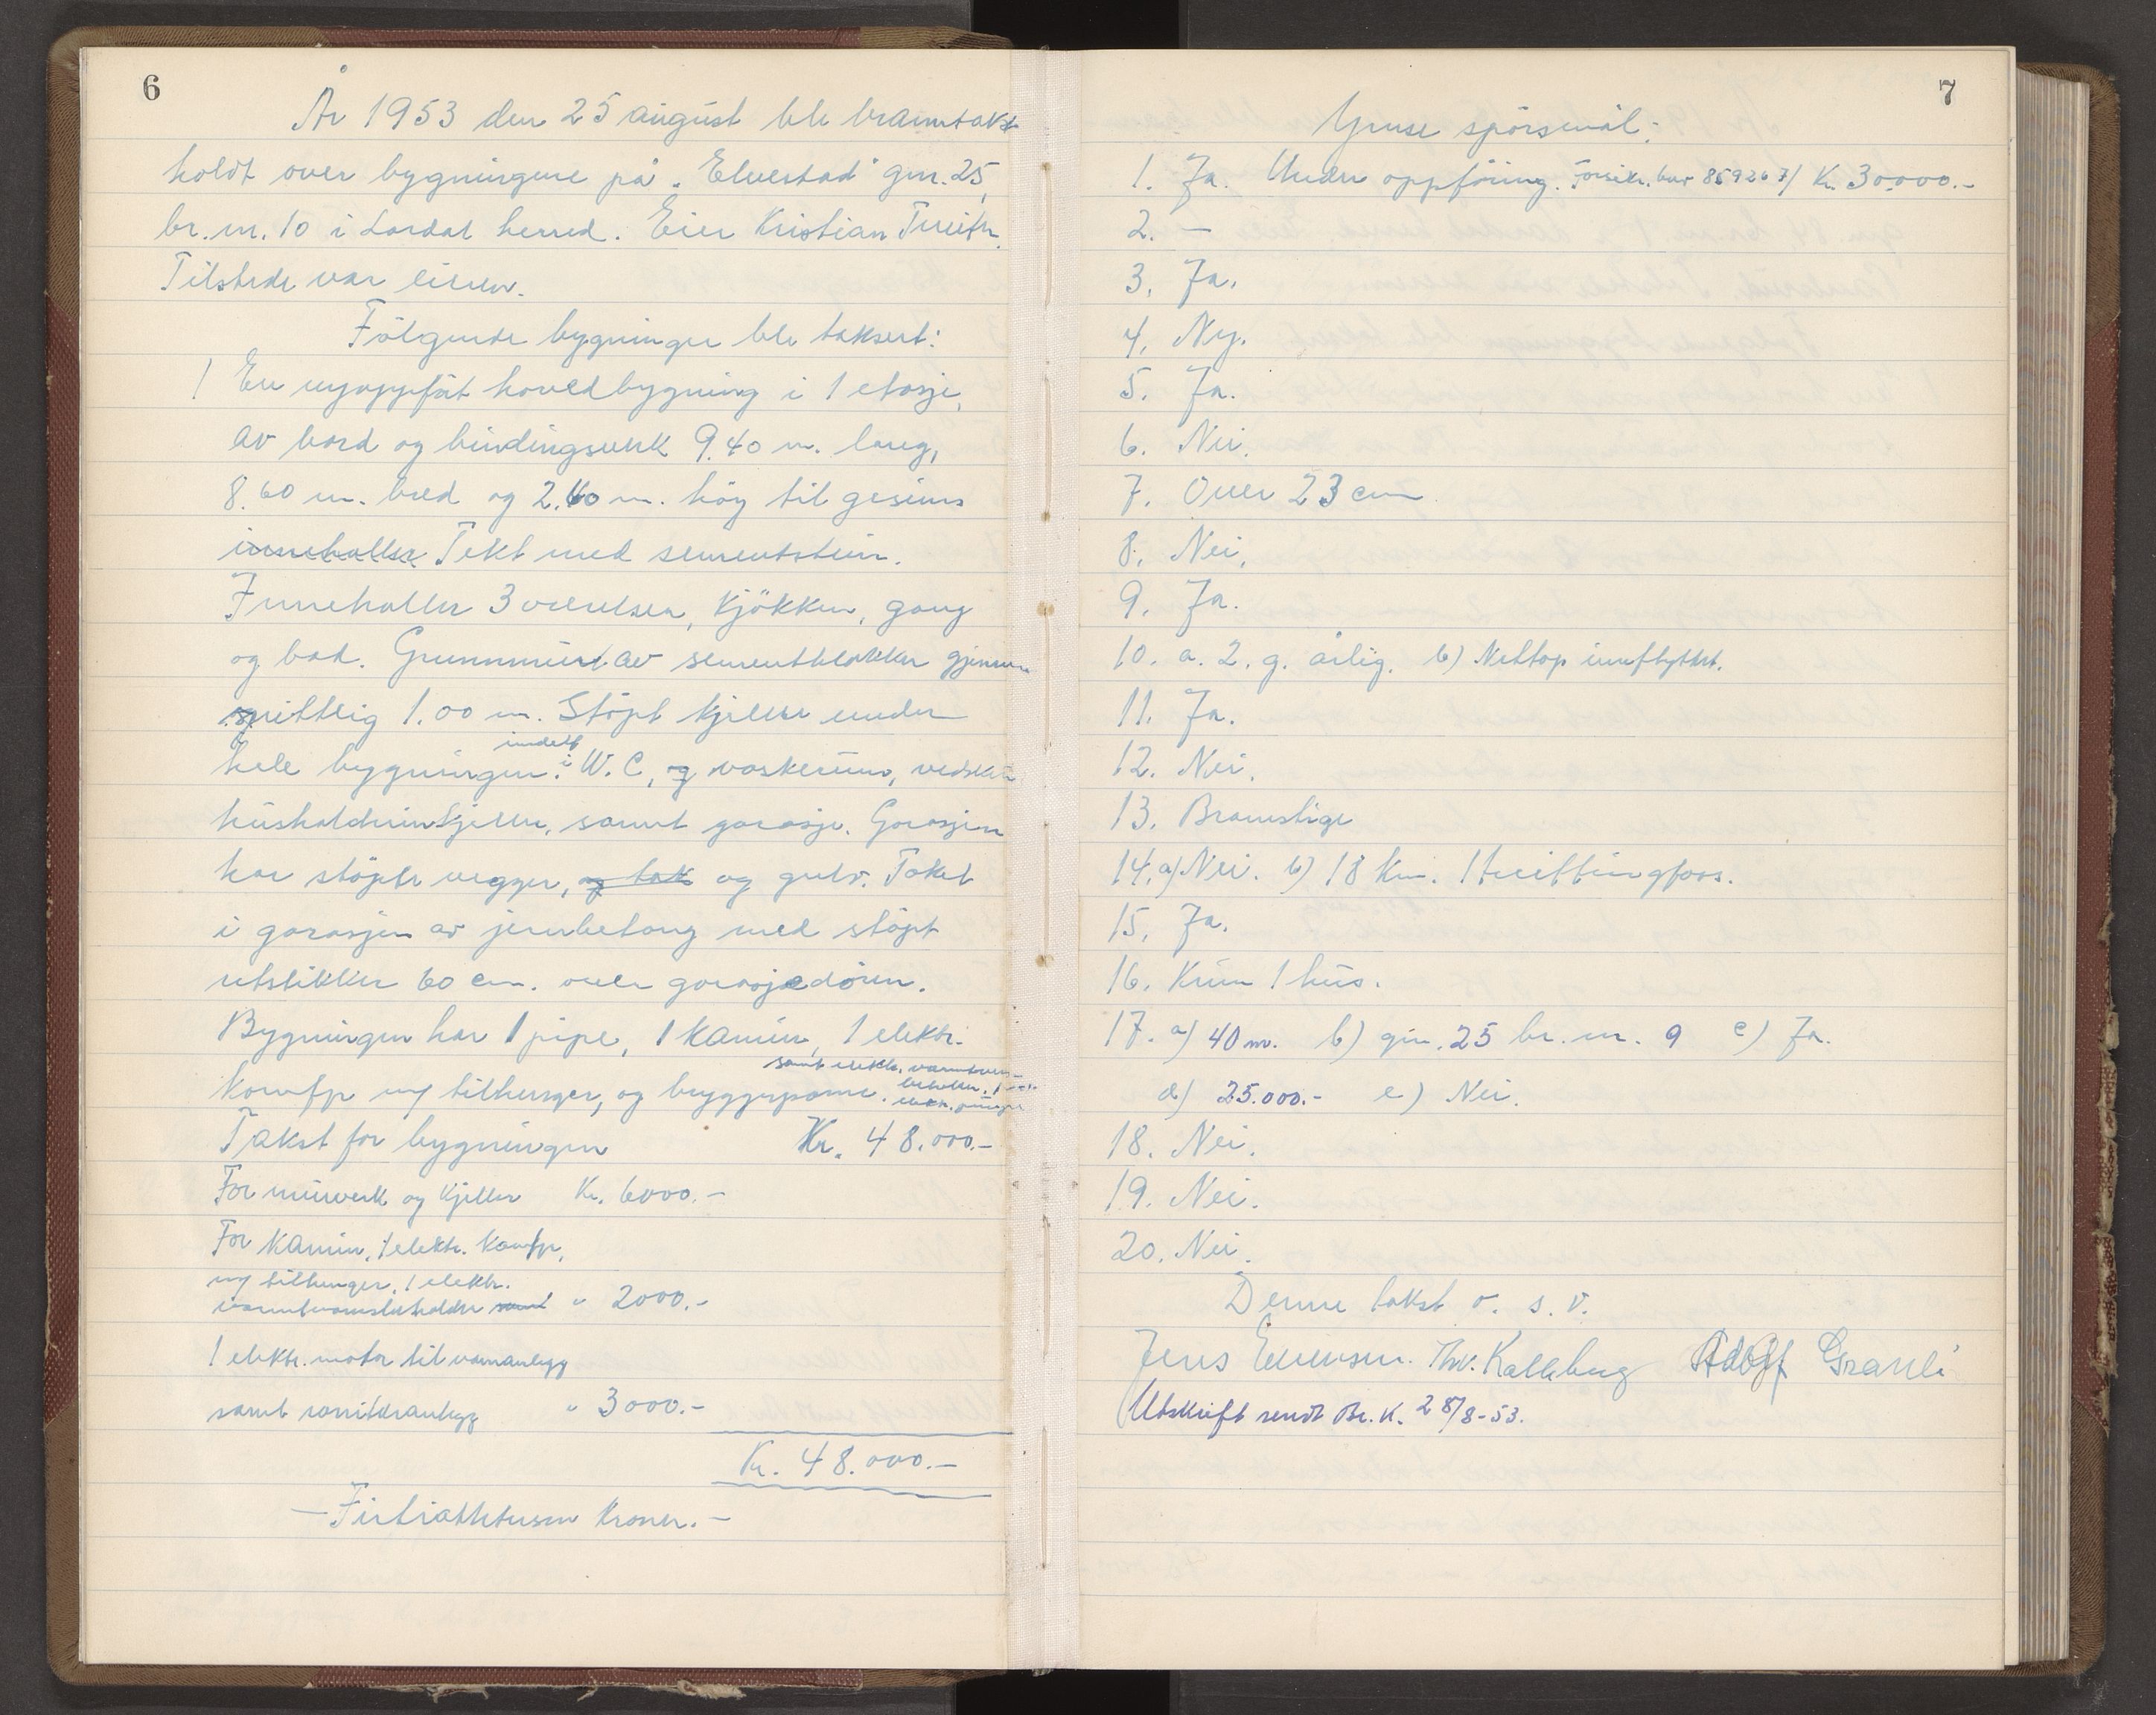 6
År 1953 den 25 august ble branntakst
holdt over bygningene på "Elvestad" gnr. 25,
br. nr. 10 i Lardal herred. Eier Kristian
Tilstede var eieren.
Følgende bygninger ble taksert:
1 En nyoppført hovedbygning i 1 etasje,
av bord og bindingsverk 9.40 m. lang,
8.60 m. bred og 2.60 m. høy til gesims
inneholder Tekt med sementstein.
Inneholder 3 værelser, kjøkken, gang
og bad. Grunnmur av sementblokker gjennom
snittlig 1.00 m. Støpt kjeller under
hele bygningen. indelt i W.C, og vaskerum, vedskur
husholdninskjeller, samt garasje. Garasjen
har støpte vegger, og tak og gulv. Taket
i garasjen av jernbetong med støpt
utstikker 60 cm. over garasjedøren.
Bygningen har 1 pipe, 1 kamin, 1 elektr.
komfyr m/ tilhenger, og bryggepanne. samt elektr. varmtvanns-
beholder.
Takst for bygningen Kr. 48.000.-
For murverk og kjeller Kr. 6000.-
For kamin, 1 elektr. komfyr,
m/ tilhenger, 1 elektr.
varmtvannsbeholder samt " 2000.-
1 elektr. motor til vannanlegg
samt sanitæranlegg " 3000.-
Kr. 48.000.-
- Førtiåttetusen kroner. -
7
Gruse spørsmål:
1. Ja. Under oppføring. Forsikr. bev 859267/ Kr. 30.000.-
2. -
3. Ja.
4. Ny.
5. Ja.
6. Nei.
7. Over 23 cm
8. Nei.
9. Ja.
10. a. 2. g. årlig. b) Nettop inneflyttet.
11. Ja.
12. Nei.
13. Brannstige
14. a) Nei. b) 18 km. Hvittingfoss.
15. Ja.
16. Kun 1 hus.
17. a) 40 m. b) gnr. 25 br. nr. 9 c) Ja.
d) 25.000.- e) Nei.
18. Nei.
19. Nei.
20. Nei.
Denne takst o. s. v.
Jens Evensen. Thv. Kalleberg Adolf Granli
Utskrift sendt Br. K. 28/8-53.